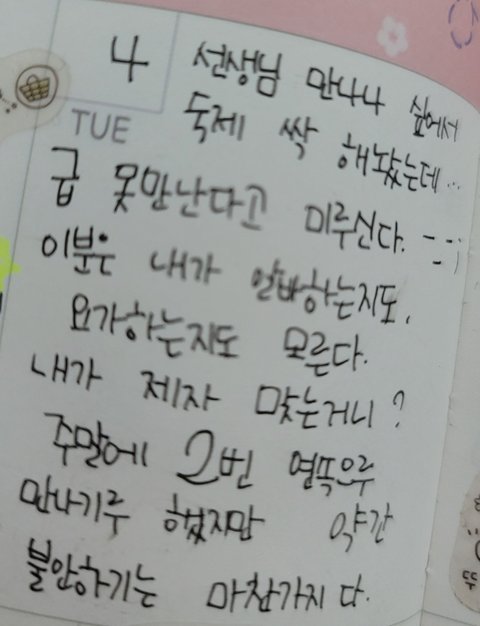 4 선생님 만나나 싶어서
TUE 둑제 싹 해놨는데...
급 못만난다고 미루신다. --;
이분은 내가 알바하는지도,
요가하는지도 모른다.
내가 제자 맞는거니?
주말에 2번 연뜩으루
만나기루 했지만 약간
불안하기는 마찬가지다.
뚜